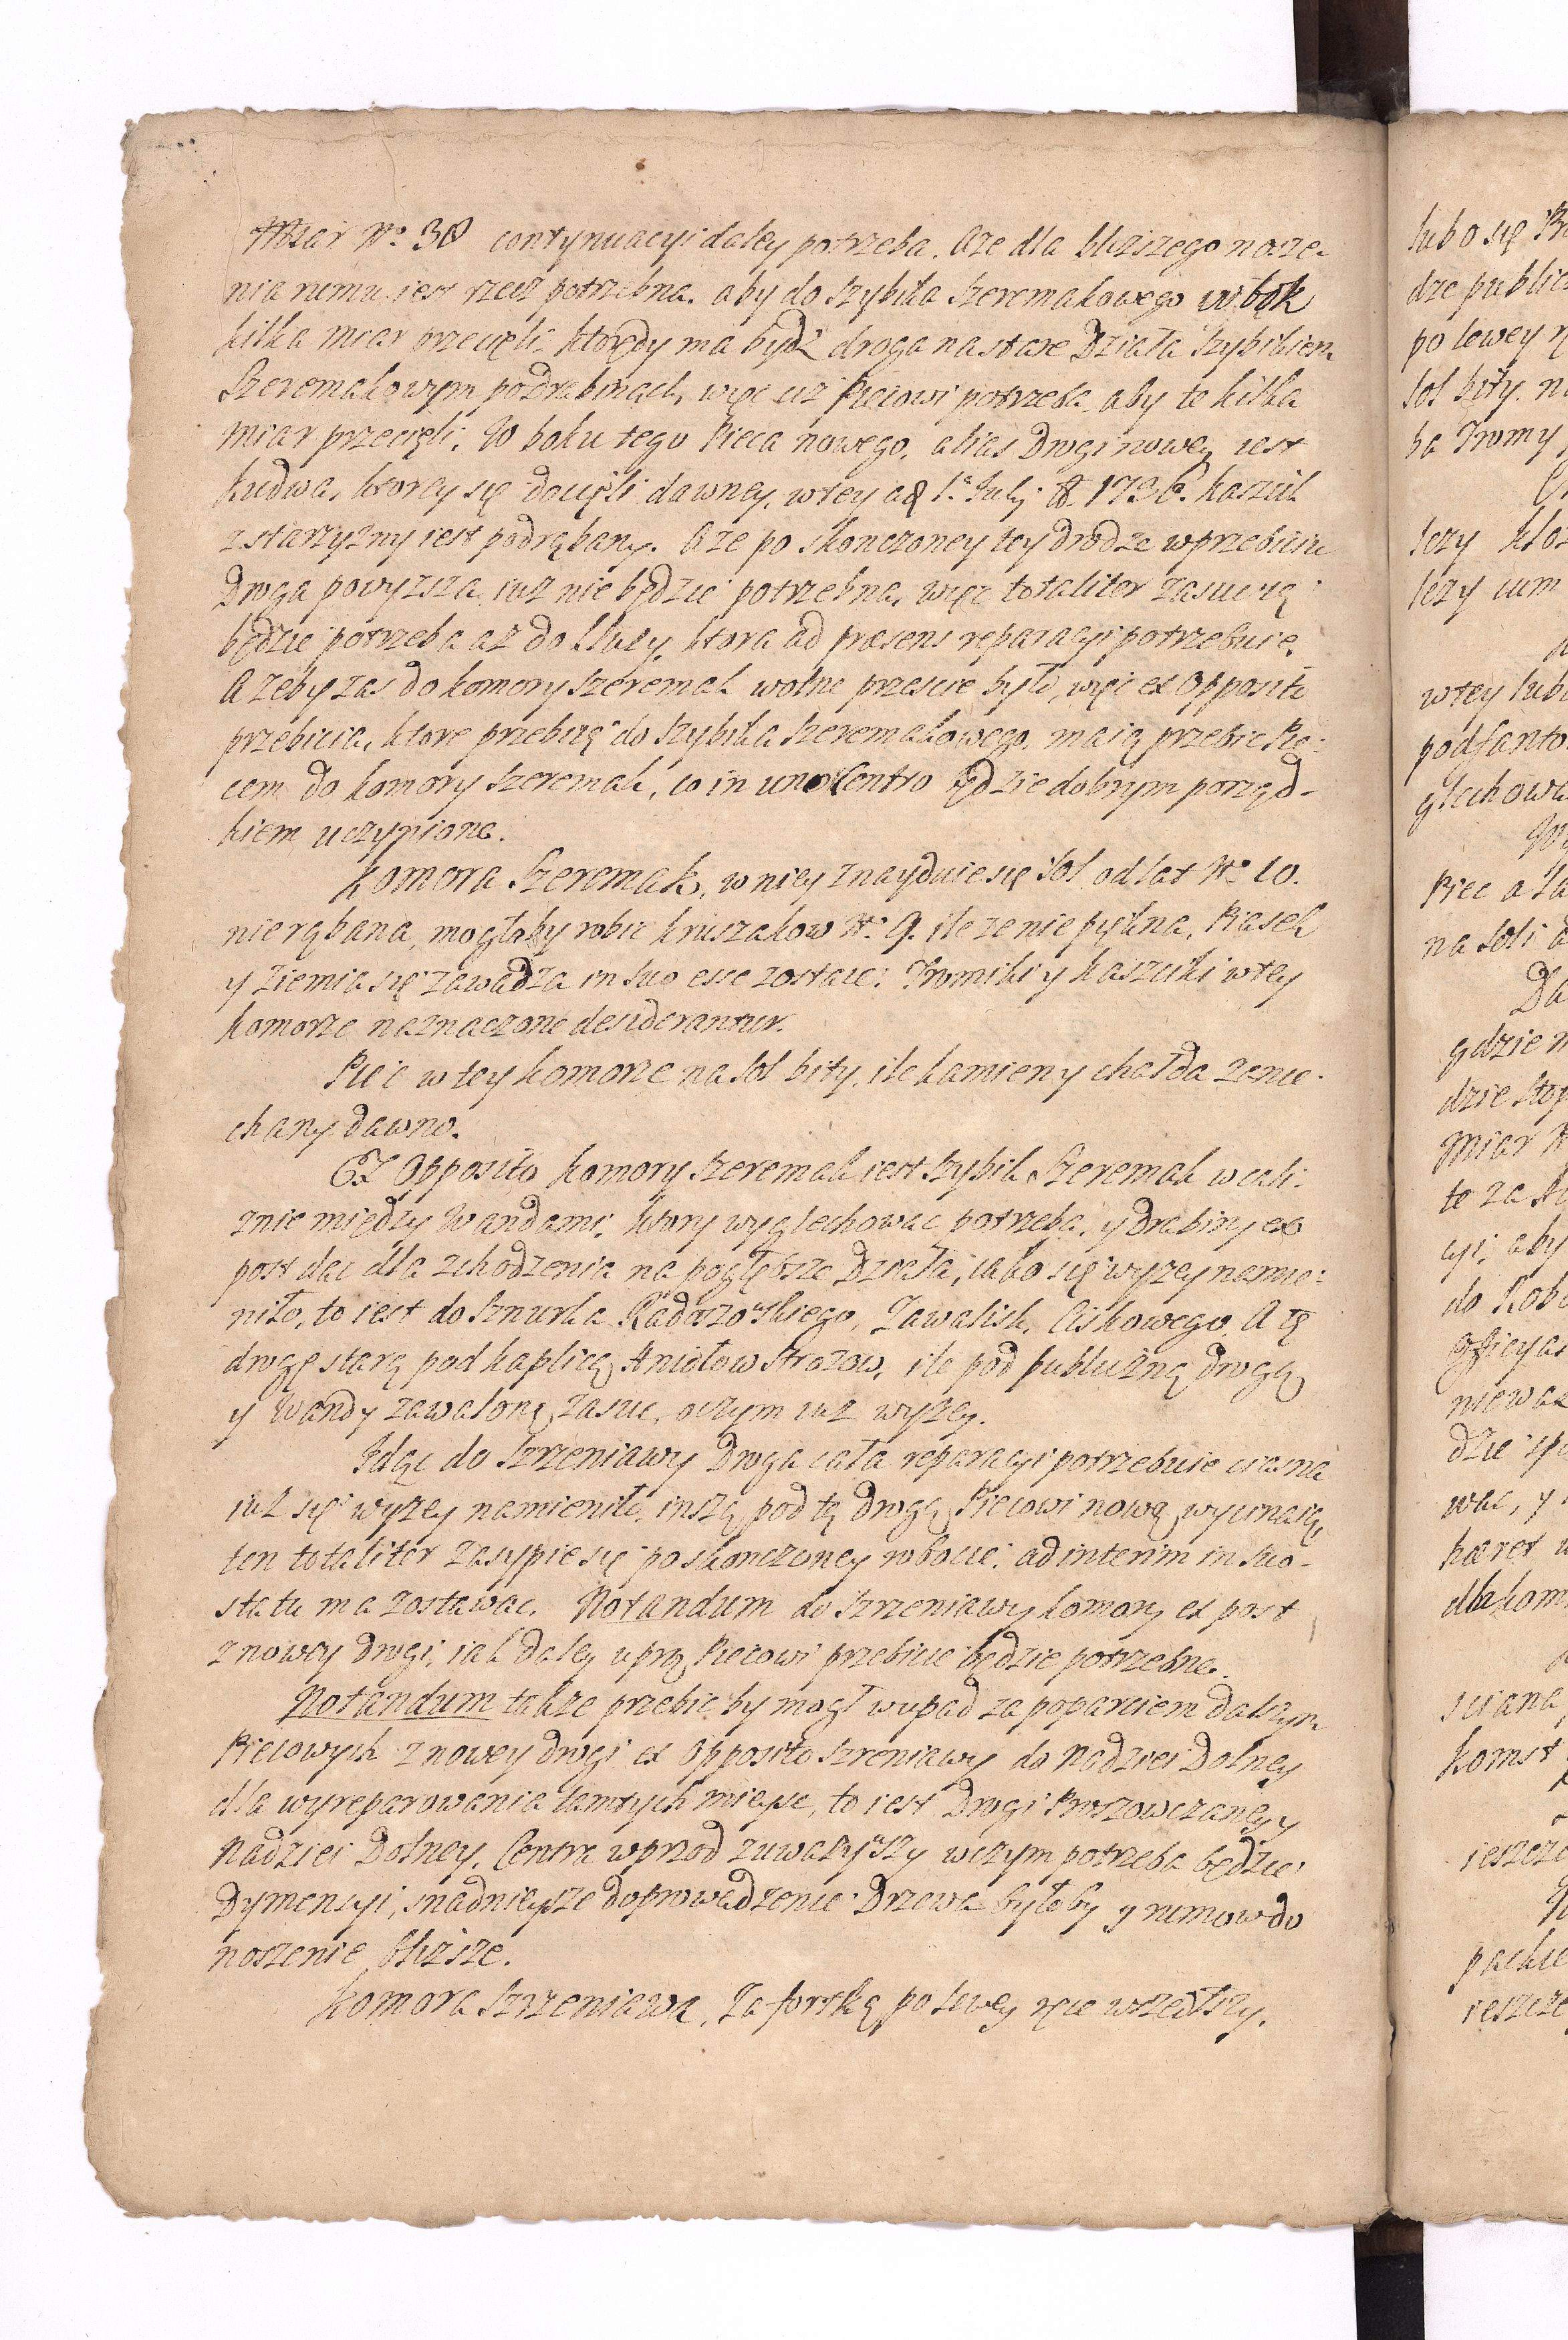 Miar No 30 contynuacyi daley potrzeba. Aze dla blizszego nosze-
nia rumu iest rzecz potrzebna. aby do Szybika Szeremakowego w bok
kilka miar przecięli. ktorędy ma bydź droga na stare Działa Szybikiem
Szeremakowym po drabinach, więc usz Piecowi potrzeba, aby te kilka
miar przecięli. W boku tego Pieca nowego, alias Drogi nowey iest
Kudwa, ktorey się docięli dawney, w tey ad 1a Julij A. 1736. Kaszik
z starzyzny iest podrąbany. Aze po skonczoney tey drodze w przebiciu
Droga powyzsza iuz nie będzie potrzebna, więc totaliter zasuc ią
będzie potrzeba az do kluzy, ktora ad præsens reparacyi potrzebuie.
Azeby zas do komory Szeremak wolne przescie było, więc ex Opposito
przebicia, ktore przebiią do Szybika Szeremakowego, maią przebic Pie-
cem do komory Szeremak, co in uno Centro będzie dobrym porząd-
kiem uczynione.
Komora Szeremak, w niey znayduie się sol od lat No 10.
nie rąbana, mogłaby robic kruszakow No 9. ile ze nie pękna, Piasek
y Ziemia się zawadza in suo esse zostaie. Tromiki y kaszciki w tey
komorze naznaczone desiderantur.
Piec w tey komorze na sol bity, ile kamieny chałda zanie-
chany dawno.
Ex Opposito komory Szeremak iest Szybik Szeremak w cali-
znie między Wandami, ktory wyglechowac potrzeba, y drabiny ex
post dac dla schodzenia na pogłębsze Działa, iako się wyzey namie-
niło, to iest do Sznurka Radoszowskiego, Zawalisk, Ciskowego. A tę
drogę starą pod kaplicą Aniołow Strozow, ile pod publiczną drogą
y Wandy zawaloną, zasuc, o czym iuz wyzey.
Idąc do Srzeniawy Droga cała reparacyi potrzebuie ciasna
iuz się wyzey namieniło, inszą pod tę drogę Piecowi nową wycinaią,
ten totaliter zasypie się po skonczoney robocie. ad interim in suo
statu ma zostawac. Notandum do Srzeniawy komory ex post
z nowey drogi, iak daley uprą Piecowi przebicie będzie potrzebne.
Notandum takze przebic by mogł w upad za poparciem dalszym
Piecowych z nowey drogi ex Opposito Szreniawy do Nadziei Dolney
dla wyreparowania tamtych mieysc, to iest Drogi Proszowczaney y
Nadziei Dolney. Centra wprzod zuwazywszy w czym potrzeba będzie
Dymensyi, snadnieysze doprowadzenie Drzewa byłoby y rumow do
noszenie blizsze.
Komora Srzeniawa. Za fortką po lewey ręce wszedłszy.